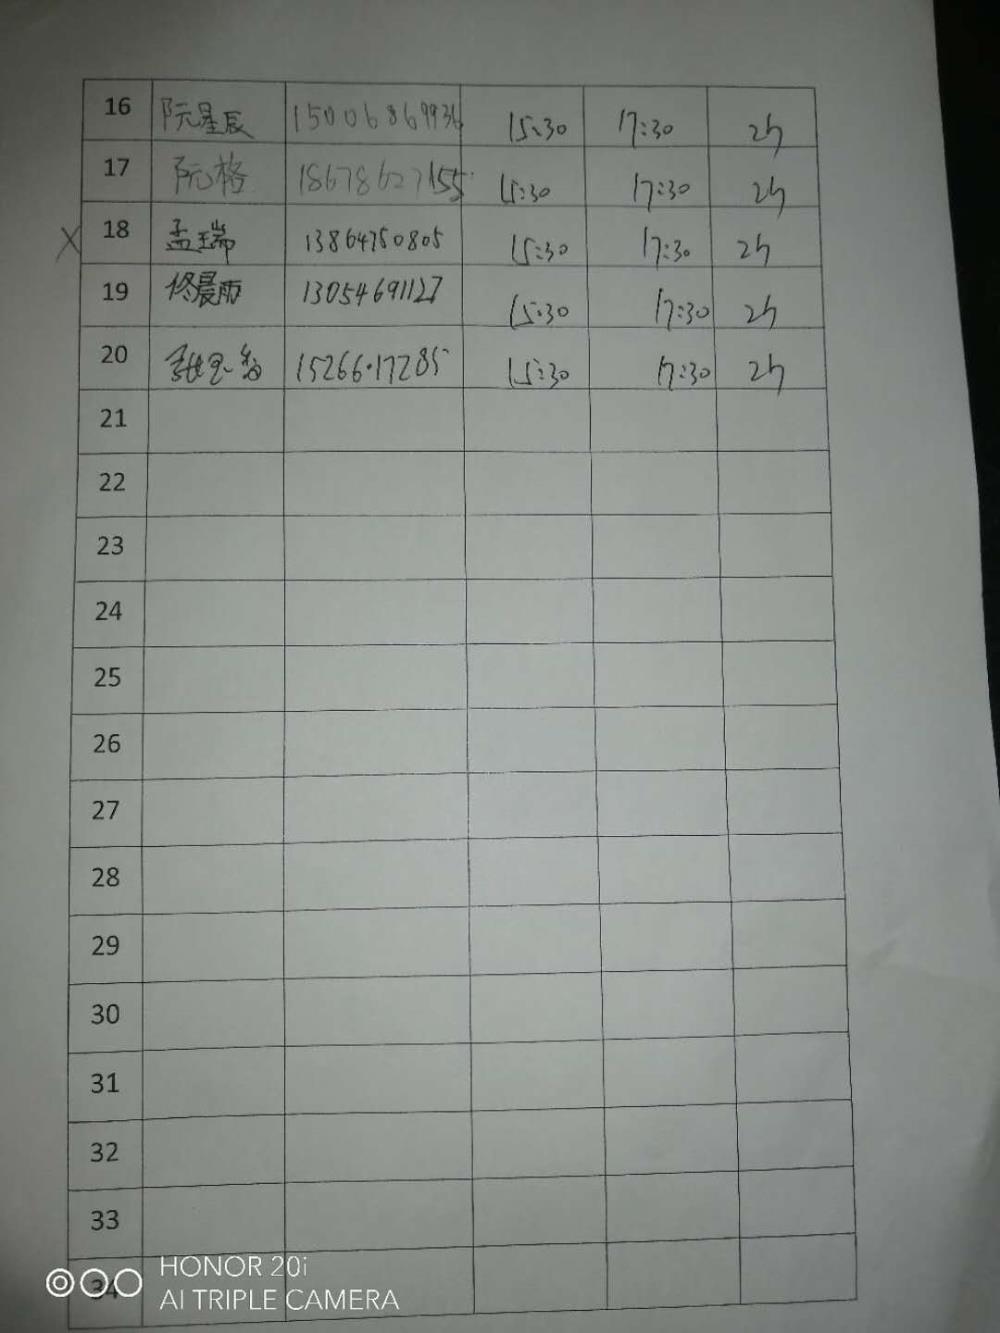 16 阮星辰 15006869936 15:30 17:30 2h
17 阮格 18678627155 15:30 17:30 2h
X 18 孟瑞 13864750805 15:30 17:30 2h
19 佟晨雨 13054691127 15:30 17:30 2h
20 15:30 17:30 2h
21
22
23
24
25
26
27
28
29
30
31
32
33
34
HONOR 20i
AI TRIPLE CAMERA